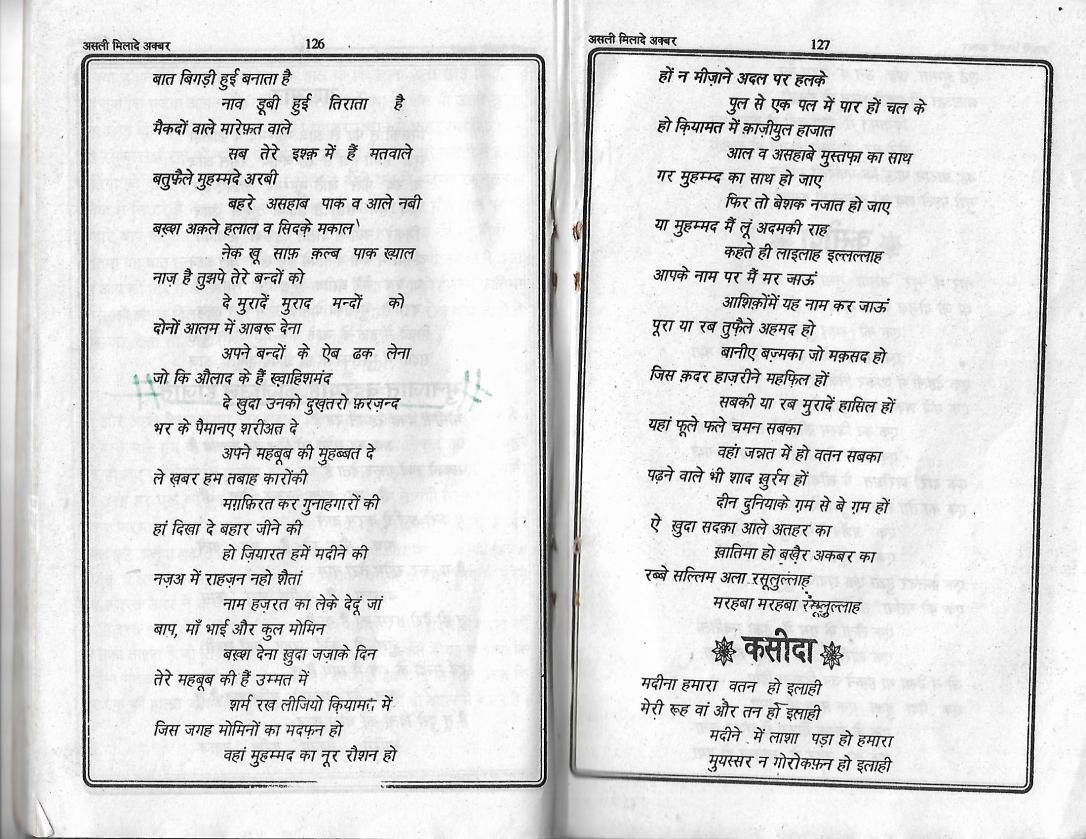 असली मिलादे अक्बर 126
बात बिगड़ी हुई बनाता है
नाव डूबी हुई तिराता है
मैकदों वाले मारेफ़त वाले
सब तेरे इश्क़ में हैं मतवाले
बतुफ़ैले मुहम्मदे अरबी
बहरे असहाब पाक व आले नबी
बख़्श अक़ले हलाल व सिदक़े मकाल
नेक खू साफ़ क़ल्ब पाक ख्याल
नाज़ है तुझपे तेरे बन्दों को
दे मुरादें मुराद मन्दों को
दोनों आलम में आबरू देना
अपने बन्दों के ऐब ढक लेना
जो कि औलाद के हैं ख्वाहिशमंद
दे खुदा उनको दुख़तरो फ़रज़न्द
भर के पैमानए शरीअत दे
अपने महबूब की मुहब्बत दे
ले ख़बर हम तबाह कारोंकी
मग़फ़िरत कर गुनाहगारों की
हां दिखा दे बहार जीने की
हो ज़ियारत हमें मदीने की
नज़अ में राहज़न नहो शैतां
नाम हज़रत का लेके देदूं जां
बाप, माँ भाई और कुल मोमिन
बख़्श देना ख़ुदा जज़ाके दिन
तेरे महबूब की हैं उम्मत में
शर्म रख लीजियो कियामत में
जिस जगह मोमिनों का मदफ़न हो
वहां मुहम्मद का नूर रौशन हो
असली मिलादे अक्बर 127
हों न मीज़ाने अदल पर हलके
पुल से एक पल में पार हों चल के
हो क़ियामत में क़ाज़ीयुल हाजात
आल व असहाबे मुस्तफ़ा का साथ
गर मुहम्म्द का साथ हो जाए
फिर तो बेशक नजात हो जाए
या मुहम्मद मैं लूं अदमकी राह
कहते ही लाइलाह इल्लल्लाह
आपके नाम पर मैं मर जाऊं
आशिक़ोंमें यह नाम कर जाऊं
पूरा या रब तुफ़ैले अहमद हो
बानीए बज़्मका जो मक़सद हो
जिस क़दर हाज़रीने महफ़िल हों
सबकी या रब मुरादें हासिल हों
यहां फूले फले चमन सबका
वहां जन्नत में हो वतन सबका
पढ़ने वाले भी शाद ख़ुर्रम हों
दीन दुनियाके ग़म से बे ग़म हों
ऐ ख़ुदा सदक़ा आले अतहर का
ख़ातिमा हो बख़ैर अकबर का
रब्बे सल्लिम अला रसूलुल्लाह
मरहबा मरहबा रसूलुल्लाह
कसीदा
मदीना हमारा वतन हो इलाही
मेरी रूह वां और तन हो इलाही
मदीने में लाशा पड़ा हो हमारा
मुयस्सर न गोरोकफ़न हो इलाही